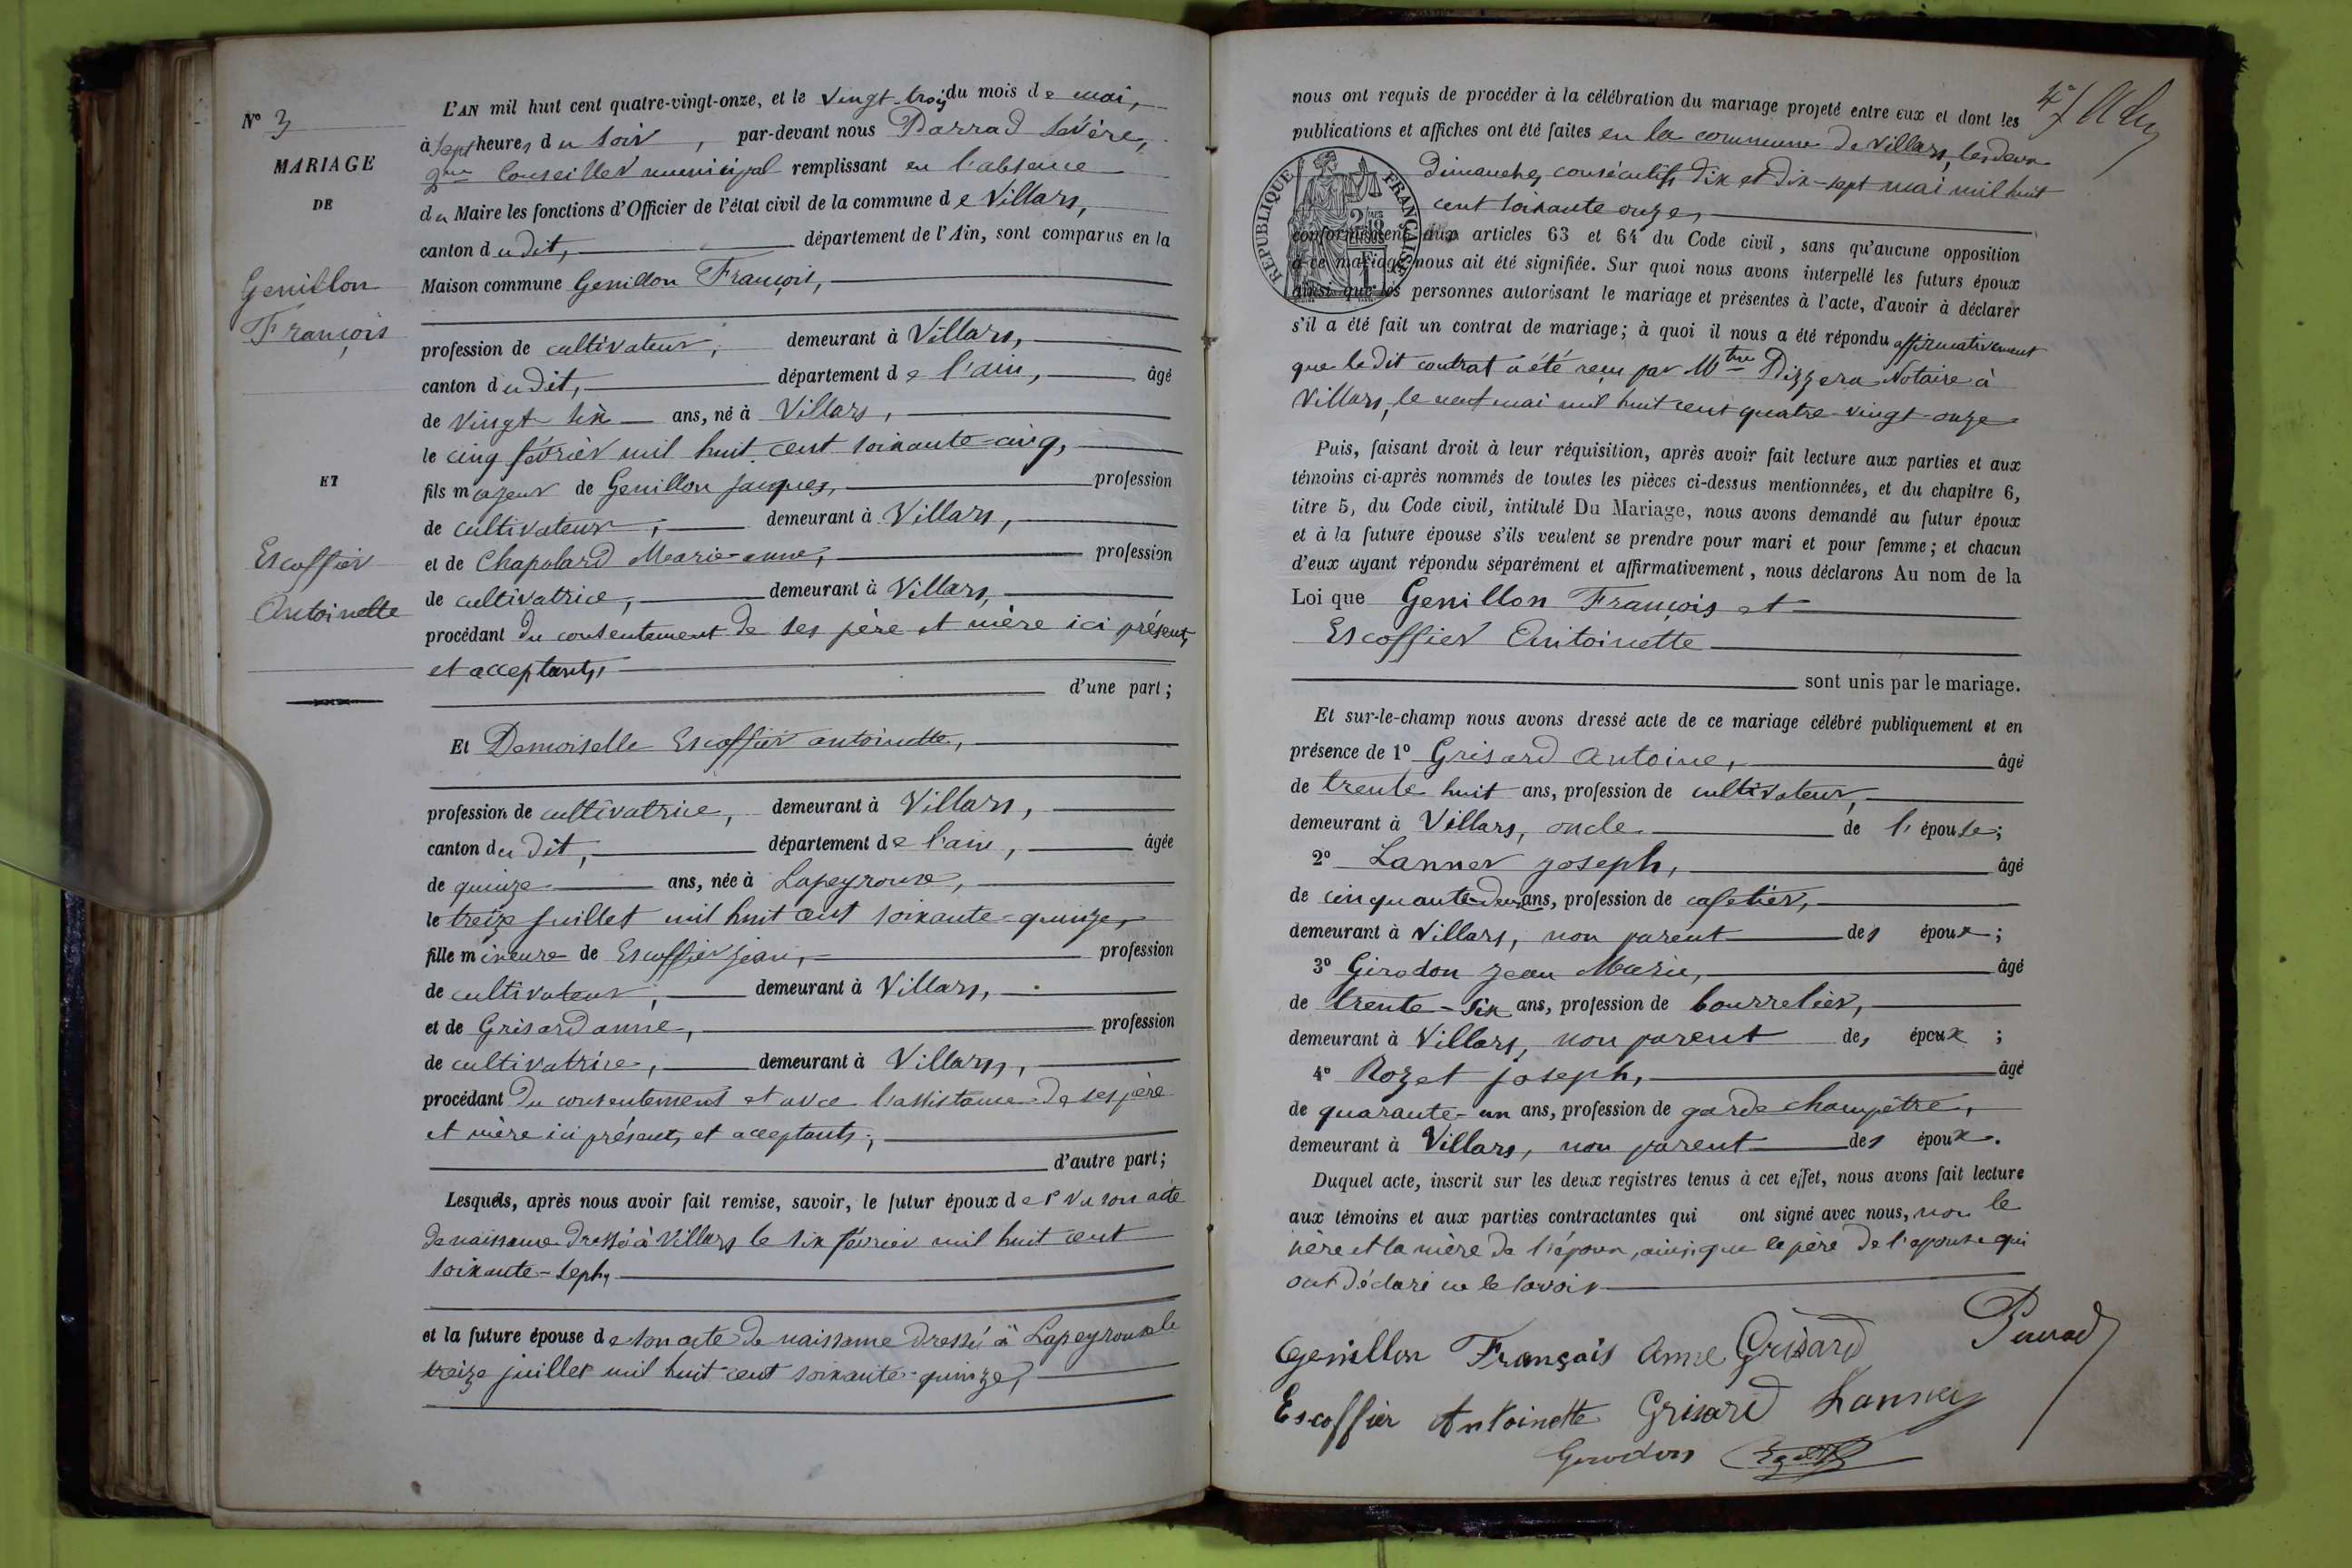 N° 3
MARIAGE
DE
Genillon
François
ET
Escoffier
Antoinette
L'AN mil huit cent quatre-vingt-onze, et le vingt-trois du mois de mai,
à sept heures du soir, par-devant nous Parrad Sévère,
2me Conseiller municipal remplissant en l'absence
du Maire les fonctions d'Officier de l'état civil de la commune de Villars,
canton dudit, département de l'Ain, sont comparus en la
Maison commune Genillon François,
profession de cultivateur, demeurant à Villars,
canton dudit, département de l'ain, âgé
de vingt six ans, né à Villars,
le cinq février mil huit cent soixante-cinq,
fils majeur de Genillon Jacques, profession
de cultivateur, demeurant à Villars,
et de Chapolard Marie-anne, profession
de cultivatrice, demeurant à Villars,
procédant du consentement de ses père et mère ici présents
et acceptants,
d'une part;
Et Demoiselle Escoffier antoinette,
profession de cultivatrice, demeurant à Villars,
canton dudit, département de l'ain, âgée
de quinze ans, née à Lapeyrouse,
le treize juillet mil huit cent soixante-quinze,
fille mineure de Escoffier Jean, profession
de cultivateur, demeurant à Villars,
et de Grisard anne, profession
de cultivatrice, demeurant à Villars,
procédant du consentement et avec l'assistance de ses père
et mère ici présents et acceptants;
d'autre part;
Lesquels, après nous avoir fait remise, savoir, le futur époux de 1° Vu son acte
de naissance dressé à Villars le six février mil huit cent
soixante-sept,
et la future épouse de son acte de naissance dressé à Lapeyrouse le
treize juillet mil huit cent soixante-quinze,
nous ont requis de procéder à la célébration du mariage projeté entre eux et dont les
publications et affiches ont été faites en la commune de Villars, les deux
dimanches consécutifs dix et dix-sept mai mil huit
cent soixante onze,
RÉPUBLIQUE FRANÇAISE
conformément aux articles 63 et 64 du Code civil, sans qu'aucune opposition
à ce mariage nous ait été signifiée. Sur quoi nous avons interpellé les futurs époux
ainsi que les personnes autorisant le mariage et présentes à l'acte, d'avoir à déclarer
s'il a été fait un contrat de mariage; à quoi il nous a été répondu affirmativement
que le dit contrat a été reçu par Mtre Pizzera Notaire à
Villars, le neuf mai mil huit cent quatre-vingt-onze
Puis, faisant droit à leur réquisition, après avoir fait lecture aux parties et aux
témoins ci-après nommés de toutes les pièces ci-dessus mentionnées, et du chapitre 6,
titre 5, du Code civil, intitulé Du Mariage, nous avons demandé au futur époux
et à la future épouse s'ils veulent se prendre pour mari et pour femme; et chacun
d'eux ayant répondu séparément et affirmativement, nous déclarons Au nom de la
Loi que Genillon François et
Escoffier Antoinette
sont unis par le mariage.
Et sur-le-champ nous avons dressé acte de ce mariage célébré publiquement et en
présence de 1° Grisard Antoine, âgé
de trente huit ans, profession de cultivateur,
demeurant à Villars, oncle de l'épouse;
2° Lanner Joseph, âgé
de cinquante-deux ans, profession de cafetier,
demeurant à Villars, non parent des époux;
3° Girodon Jean Marie, âgé
de trente-six ans, profession de bourrelier,
demeurant à Villars, non parent des époux;
4° Rozet Joseph, âgé
de quarante-un ans, profession de garde champêtre,
demeurant à Villars, non parent des époux.
Duquel acte, inscrit sur les deux registres tenus à cet effet, nous avons fait lecture
aux témoins et aux parties contractantes qui ont signé avec nous, non le
père et la mère de l'époux, ainsi que le père de l'épouse qui
ont déclaré ne le savoir
Genillon François Anne Grisard Parrad
Escoffier Antoinette Grisard Lanner
Girodon